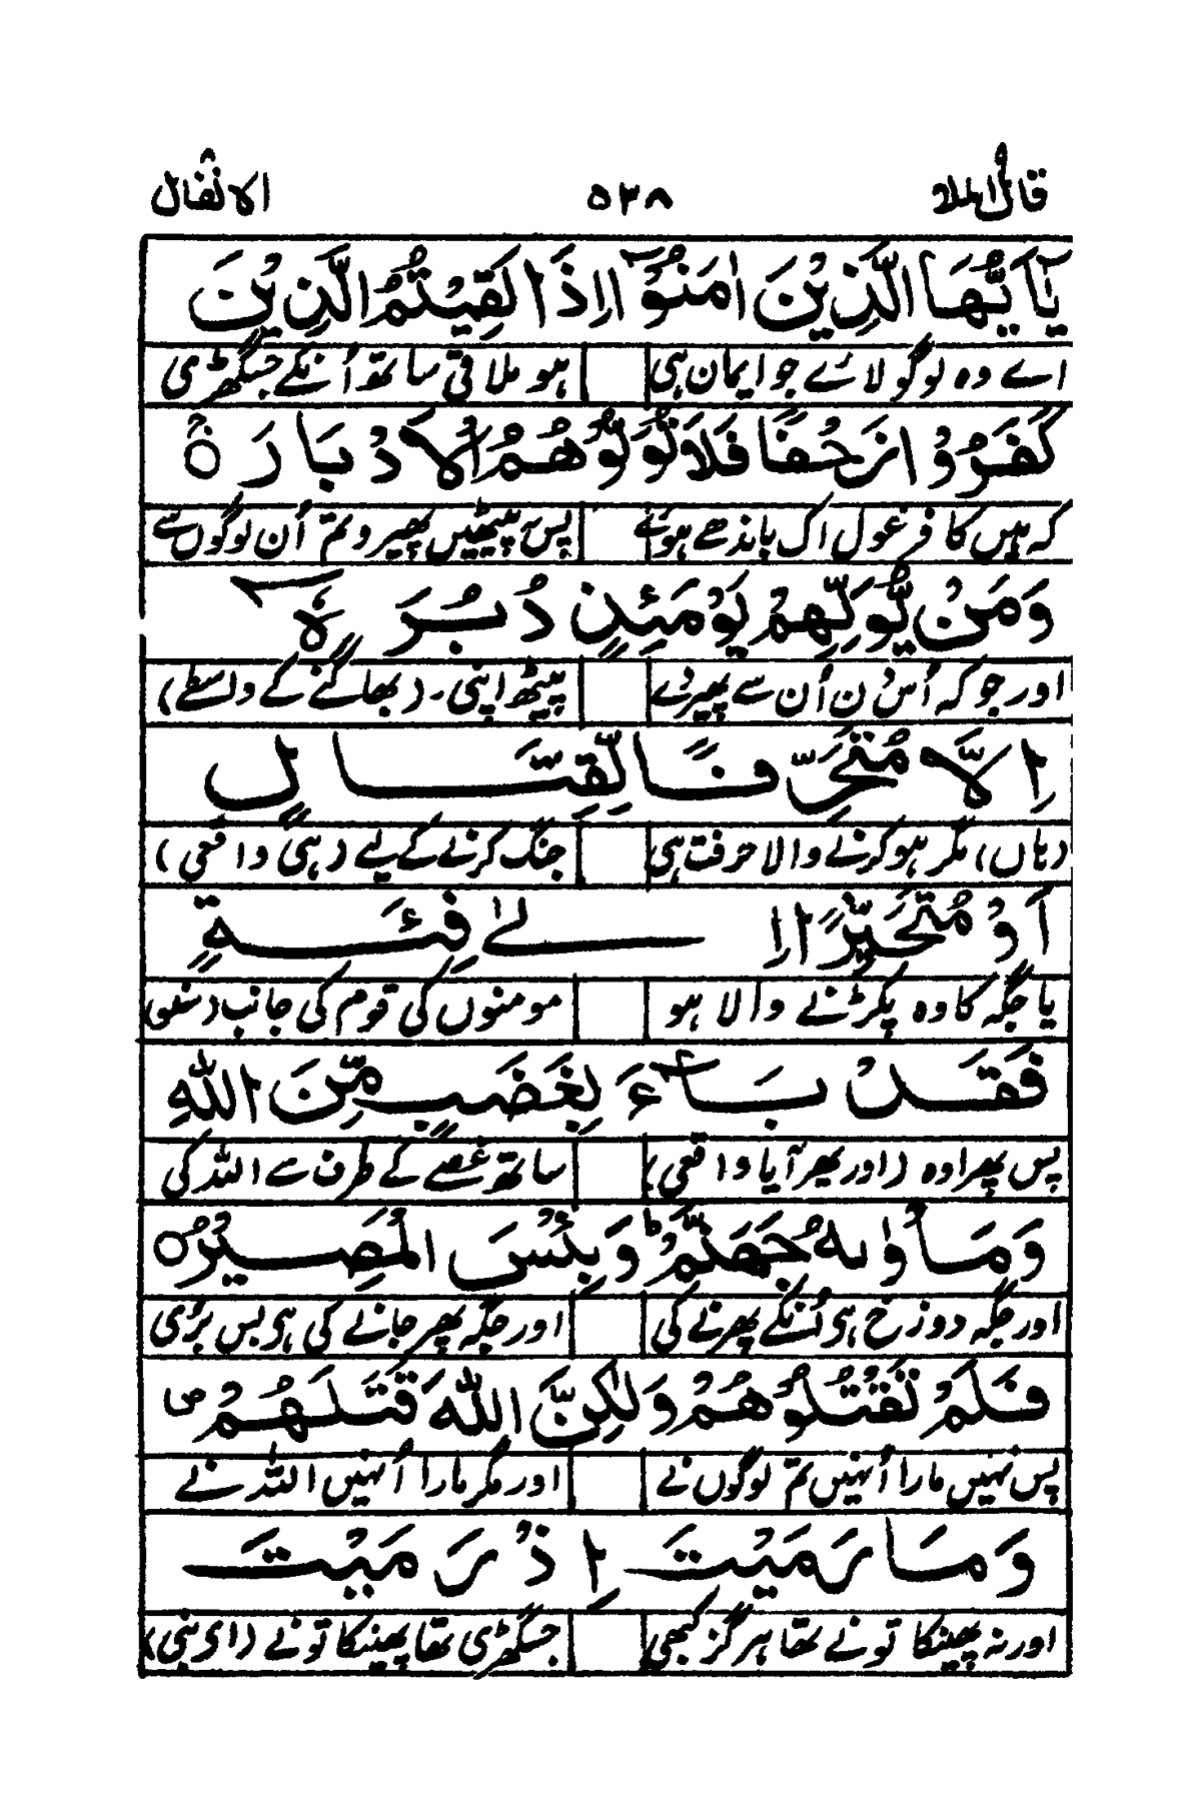 قال الملا ٩ ٥٣٨ الانفال ٨
يٰٓاَيُّهَا الَّذِيْنَ اٰمَنُوْٓا اِذَا لَقِيْتُمُ الَّذِيْنَ
اے وہ لوگو لائے جو ایمان ہی ہو ملاقی ساتھ اُنکے جسگھڑی
كَفَرُوْا زَحْفًا فَلَا تُوَلُّوْهُمُ الْاَدْبَارَ ۚ
کہ ہیں کافر غول اک باندھے ہوئے پس پیٹھیں پھیرو تم اُن لوگوں سے
وَمَنْ يُّوَلِّهِمْ يَوْمَئِذٍ دُبُرَهٗٓ
اور جو کہ اُس دن اُن سے پھیرے پیٹھ اپنی۔ (بھاگنے کے واسطے)
اِلَّا مُتَحَرِّفًا لِّقِتَالٍ
(ہاں) مگر ہو کرنے والا حرفت ہی جنگ کرنے کے لیے (ہی واقعی)
اَوْ مُتَحَيِّزًا اِلٰى فِئَةٍ
یا جگہ کا وہ پکڑنے والا ہو مومنوں کی قوم کی جانب
فَقَدْ بَآءَ بِغَضَبٍ مِّنَ اللّٰهِ
پس پھرا وہ (اور پھر آیا واقعی) ساتھ غصے کے طرف سے اللہ کی
وَمَاْوٰىهُ جَهَنَّمُ ؕ وَبِئْسَ الْمَصِيْرُ ○
اور جگہ دوزخ ہی اُنکے پھرنے کی اور جگہ پھر جانے کی ہی بس بُری
فَلَمْ تَقْتُلُوْهُمْ وَلٰكِنَّ اللّٰهَ قَتَلَهُمْ ص
پس نہیں مارا اُنہیں تم لوگوں نے اور مگر مارا اُنہیں اللہ نے
وَمَا رَمَيْتَ اِذْ رَمَيْتَ
اور نہ پھینکا تو نے تھا ہرگز کبھی جسگھڑی تھا پھینکا تو نے (اے نبی)